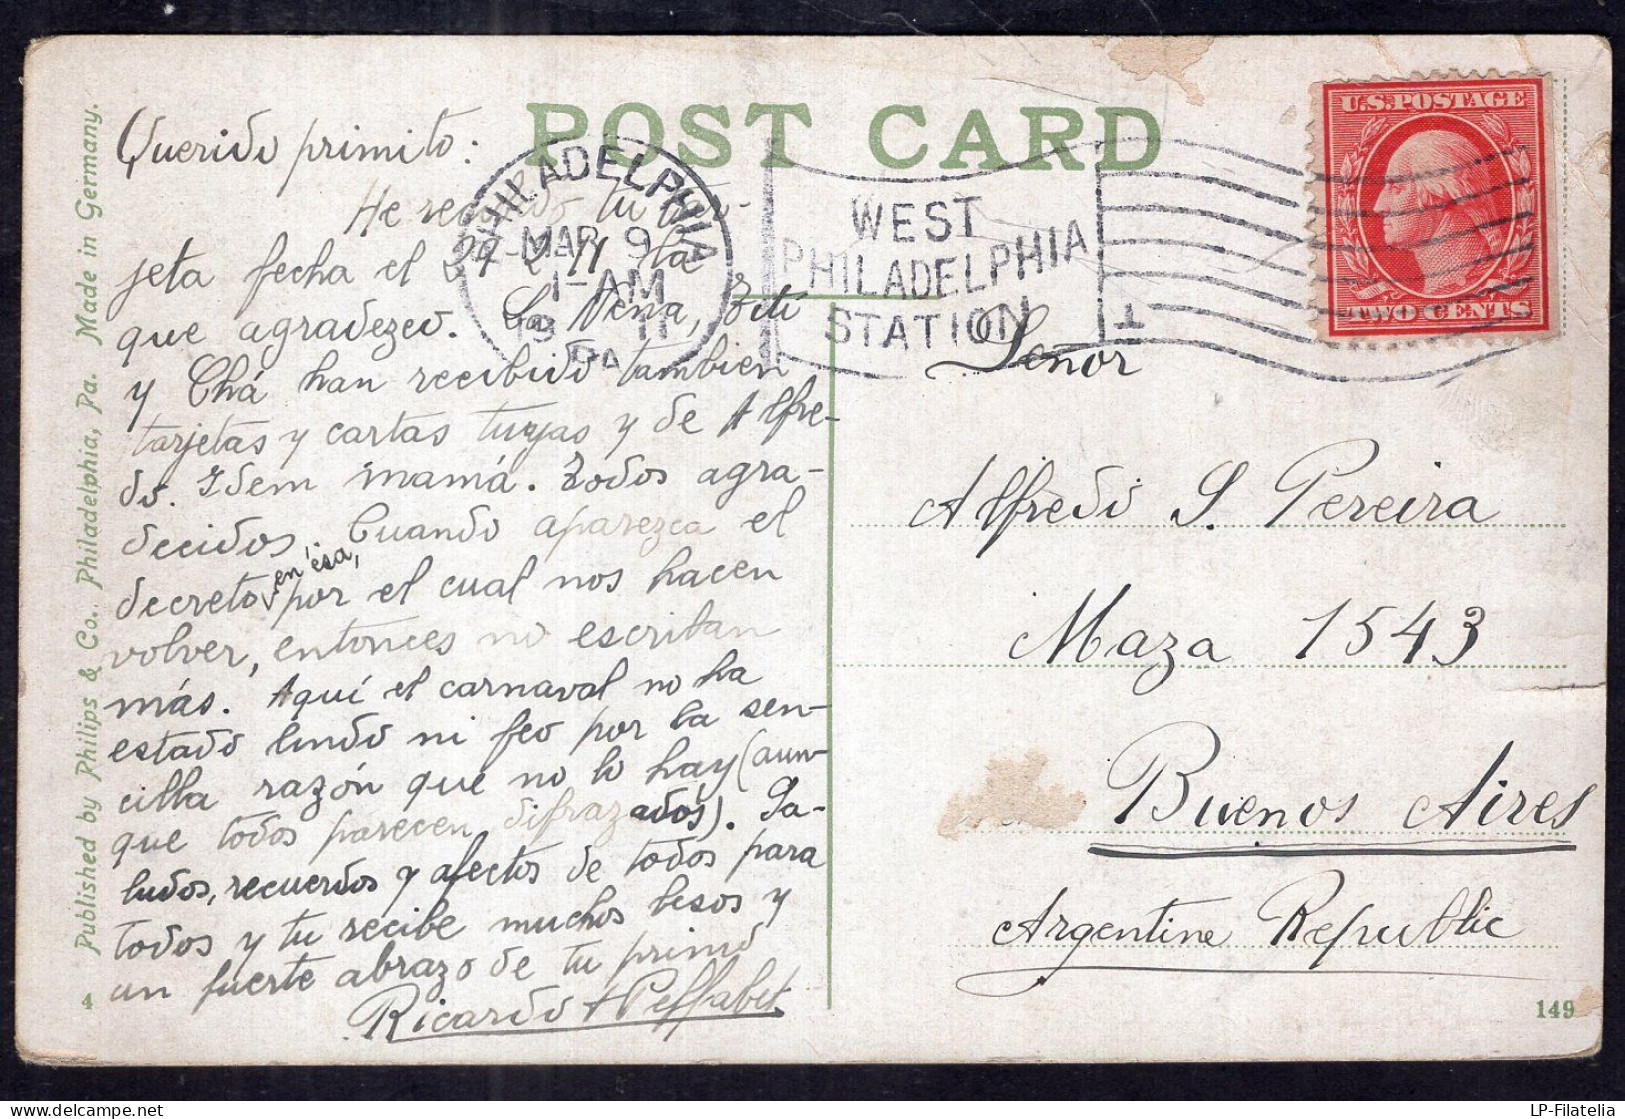 POST CARD
U.S. POSTAGE
TWO CENTS
PHILADELPHIA
MAR 9
1-AM
19 11
PA.
WEST
PHILADELPHIA
STATION
1
Published by Philips & Co., Philadelphia, Pa. Made in Germany.
Querido primito:
He recibido tu tar-
jeta fecha el la
que agradezco. La Nena, Totí
y Chá han recibido tambien
tarjetas y cartas tuyas y de Alfre-
do. Idem mamá. Todos agra-
decidos. Cuando aparezca el
decreto, en esa, por el cual nos hacen
volver, entonces no escriban
más. Aquí el carnaval no ha
estado lindo ni feo por la sen-
cilla razón que no lo hay (aun-
que todos parecen difrazados). Sa-
ludos, recuerdos y afectos de todos para
todos y tu recibe muchos besos y
un fuerte abrazo de tu primo
Ricardo A Peffabet
Señor
Alfredo S. Pereira
Maza 1543
Buenos Aires
Argentine Republic
149
LP-Filatelia